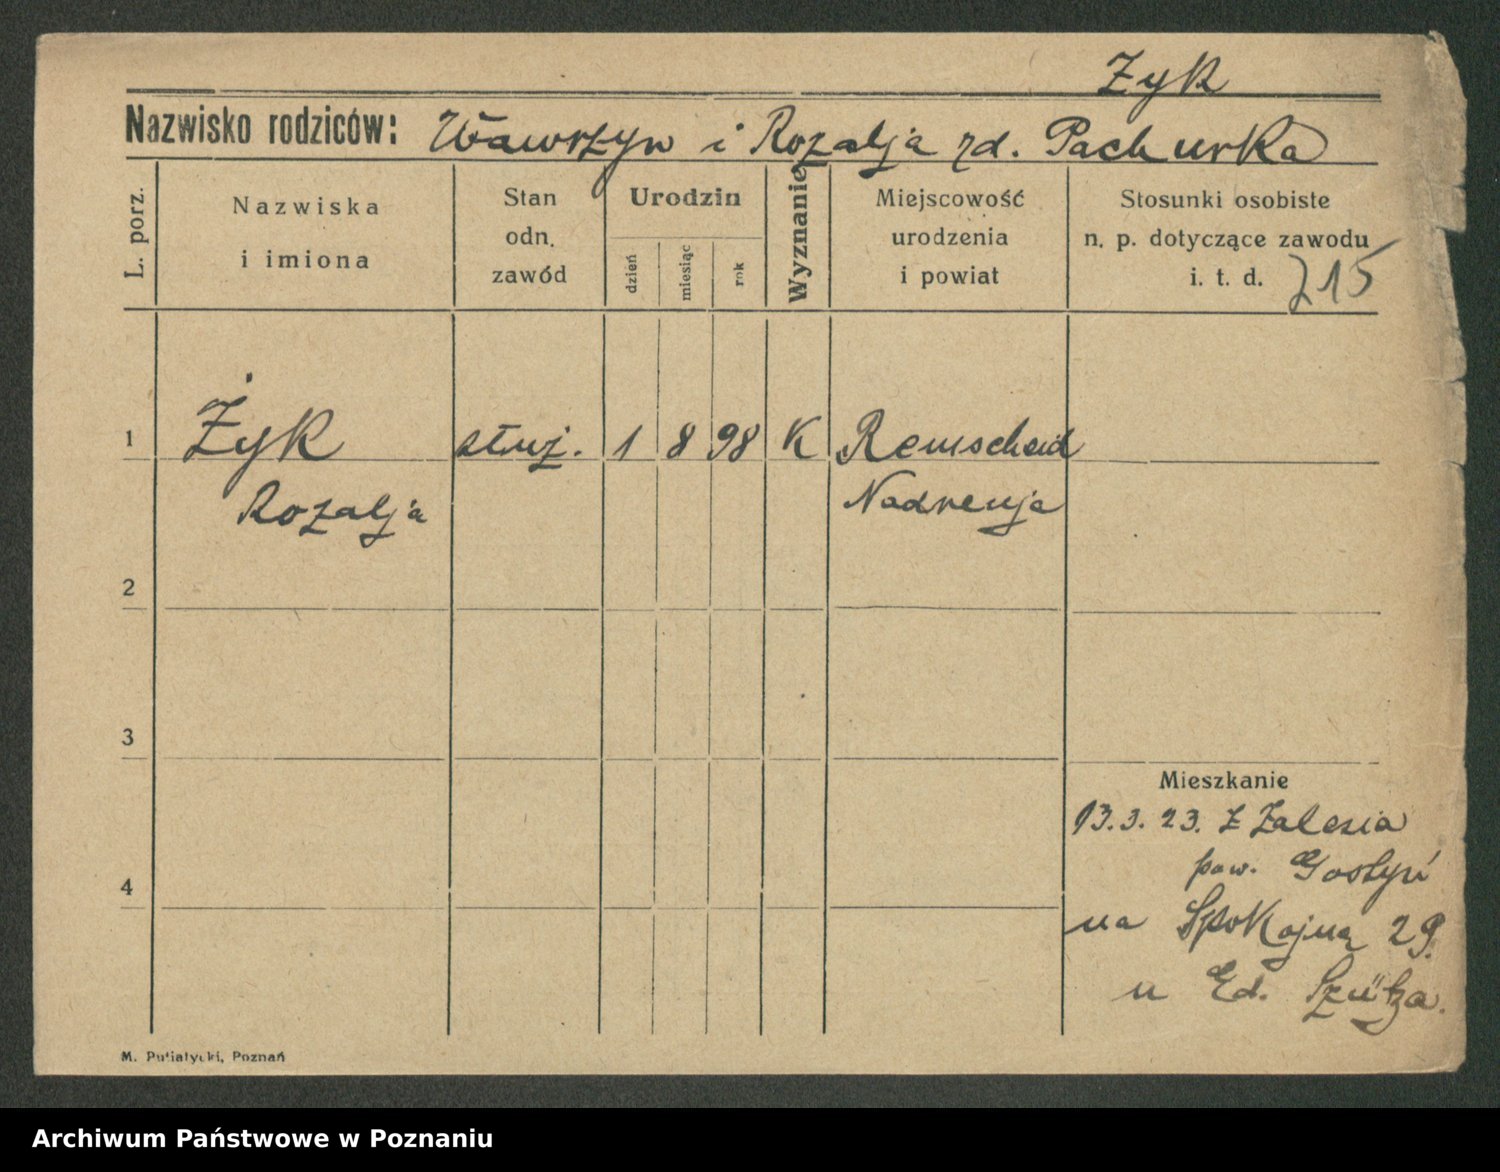 Zyk
Nazwisko rodziców: Wawrzyn i Rozalja rd. Pachurka
L. porz.
Nazwiska
i imiona
Stan
odn.
zawód
Urodzin
dzień
miesiąc
rok
Wyznanie
Miejscowość
urodzenia
i powiat
Stosunki osobiste
n. p. dotyczące zawodu
i. t. d. 215
1 Żyk służ. 1 8 98 K Remscheid
Rozalja Nadrenja
2
3
Mieszkanie
13.3.23. z Zalesia
pow. Gostyń
4
na Spokojną 29.
u Ed.
M. Putiatycki, Poznań
Archiwum Państwowe w Poznaniu